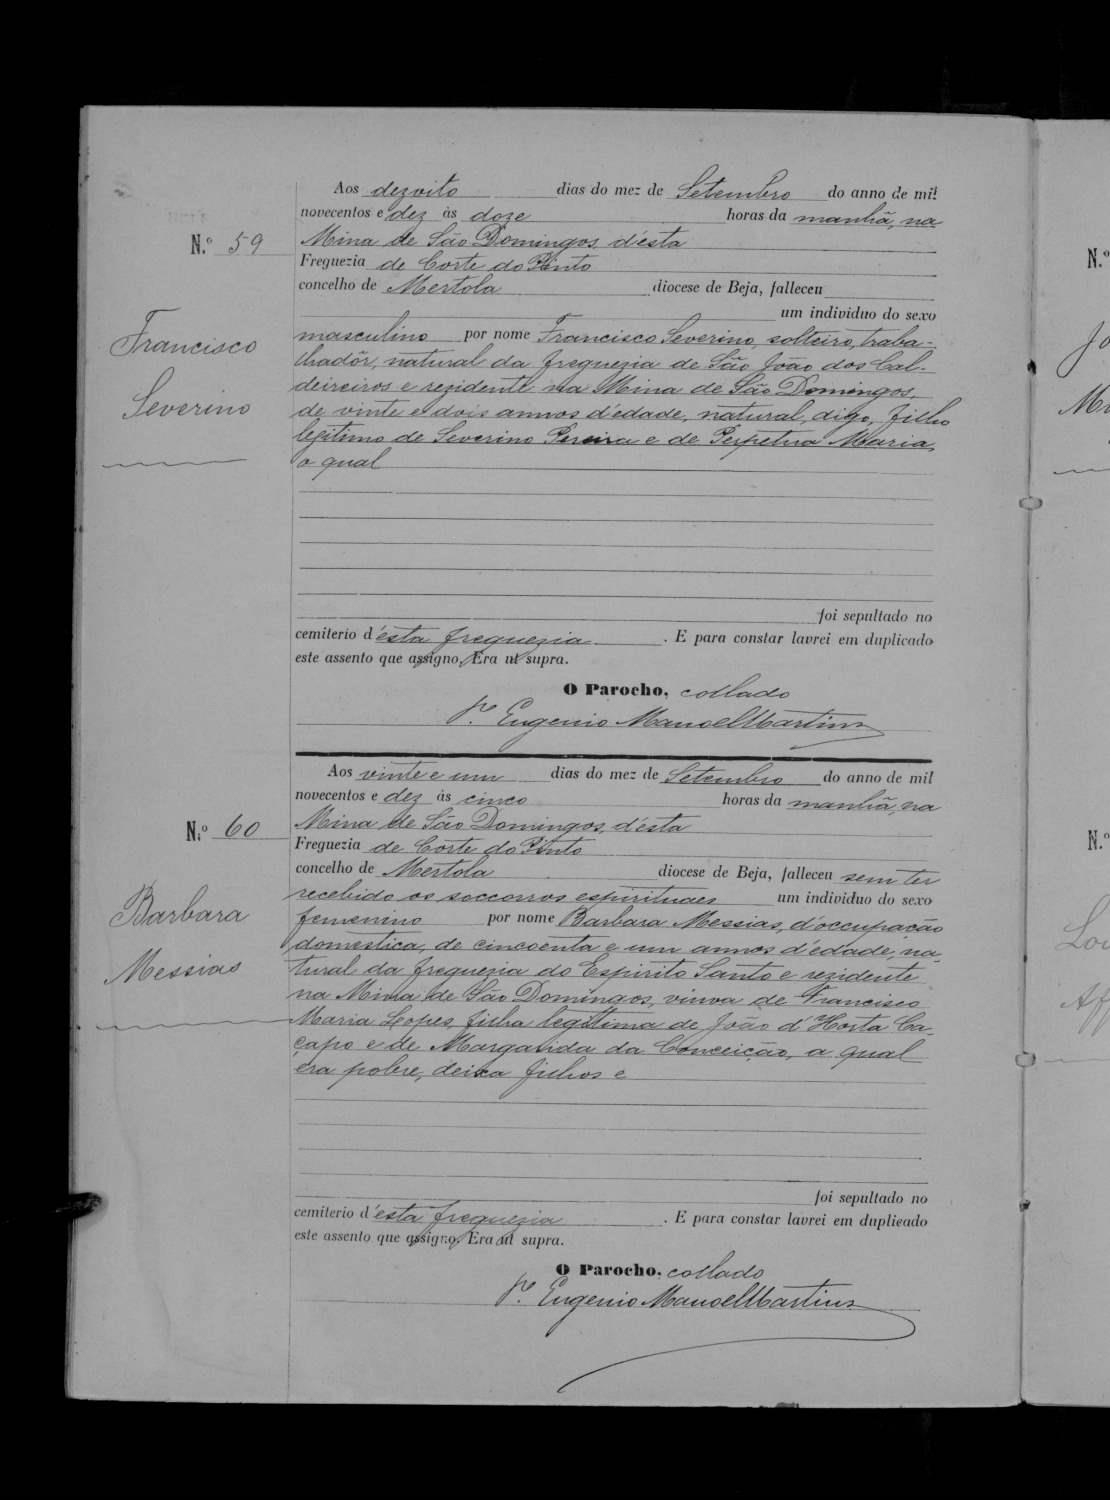 Aos dezoito dias do mez de Setembro do anno de mil
novecentos e dez às doze horas da manhã, na
Nº 59
Mina de São Domingos, d'ésta
Freguezia de Corte do Pinto
concelho de Mertola diocese de Beja, falleceu
um individuo do sexo
Francisco
Severino
masculino por nome Francisco Severino, solteiro, traba-
lhadôr, natural da freguezia de São João dos Cal-
deireiros e rezidente na Mina de São Domingos,
de vinte e dois annos d'édade, natural, digo, filho
legitimo de Severino Pereira e de Perpetua Maria,
o qual
foi sepultado no
cemiterio d'ésta freguezia. E para constar lavrei em duplicado
este assento que assigno. Era ut supra.
O Parocho, collado
Pe. Eugenio Manoel Martins
Aos vinte e um dias do mez de Setembro do anno de mil
novecentos e dez às cinco horas da manhã, na
Nº 60
Mina de São Domingos, d'ésta
Freguezia de Corte do Pinto
concelho de Mertola diocese de Beja, falleceu sem ter
recebido os soccorros espirituaes um individuo do sexo
Barbara
Messias
femenino por nome Barbara Messias, d'occupação
domestica, de cincoenta e um annos d'édade, na-
tural da freguezia do Espirito Santo e rezidente
na Mina de São Domingos, viuva de Francisco
Maria Lopes, filha legitima de João d'Horta Ca-
çapo e de Margarida da Conceição, a qual
éra pobre, deixa filhos e
foi sepultado no
cemiterio d'ésta freguezia. E para constar lavrei em duplicado
este assento que assigno. Era ut supra.
O Parocho, collado
Pe. Eugenio Manoel Martins
N.º
N.º